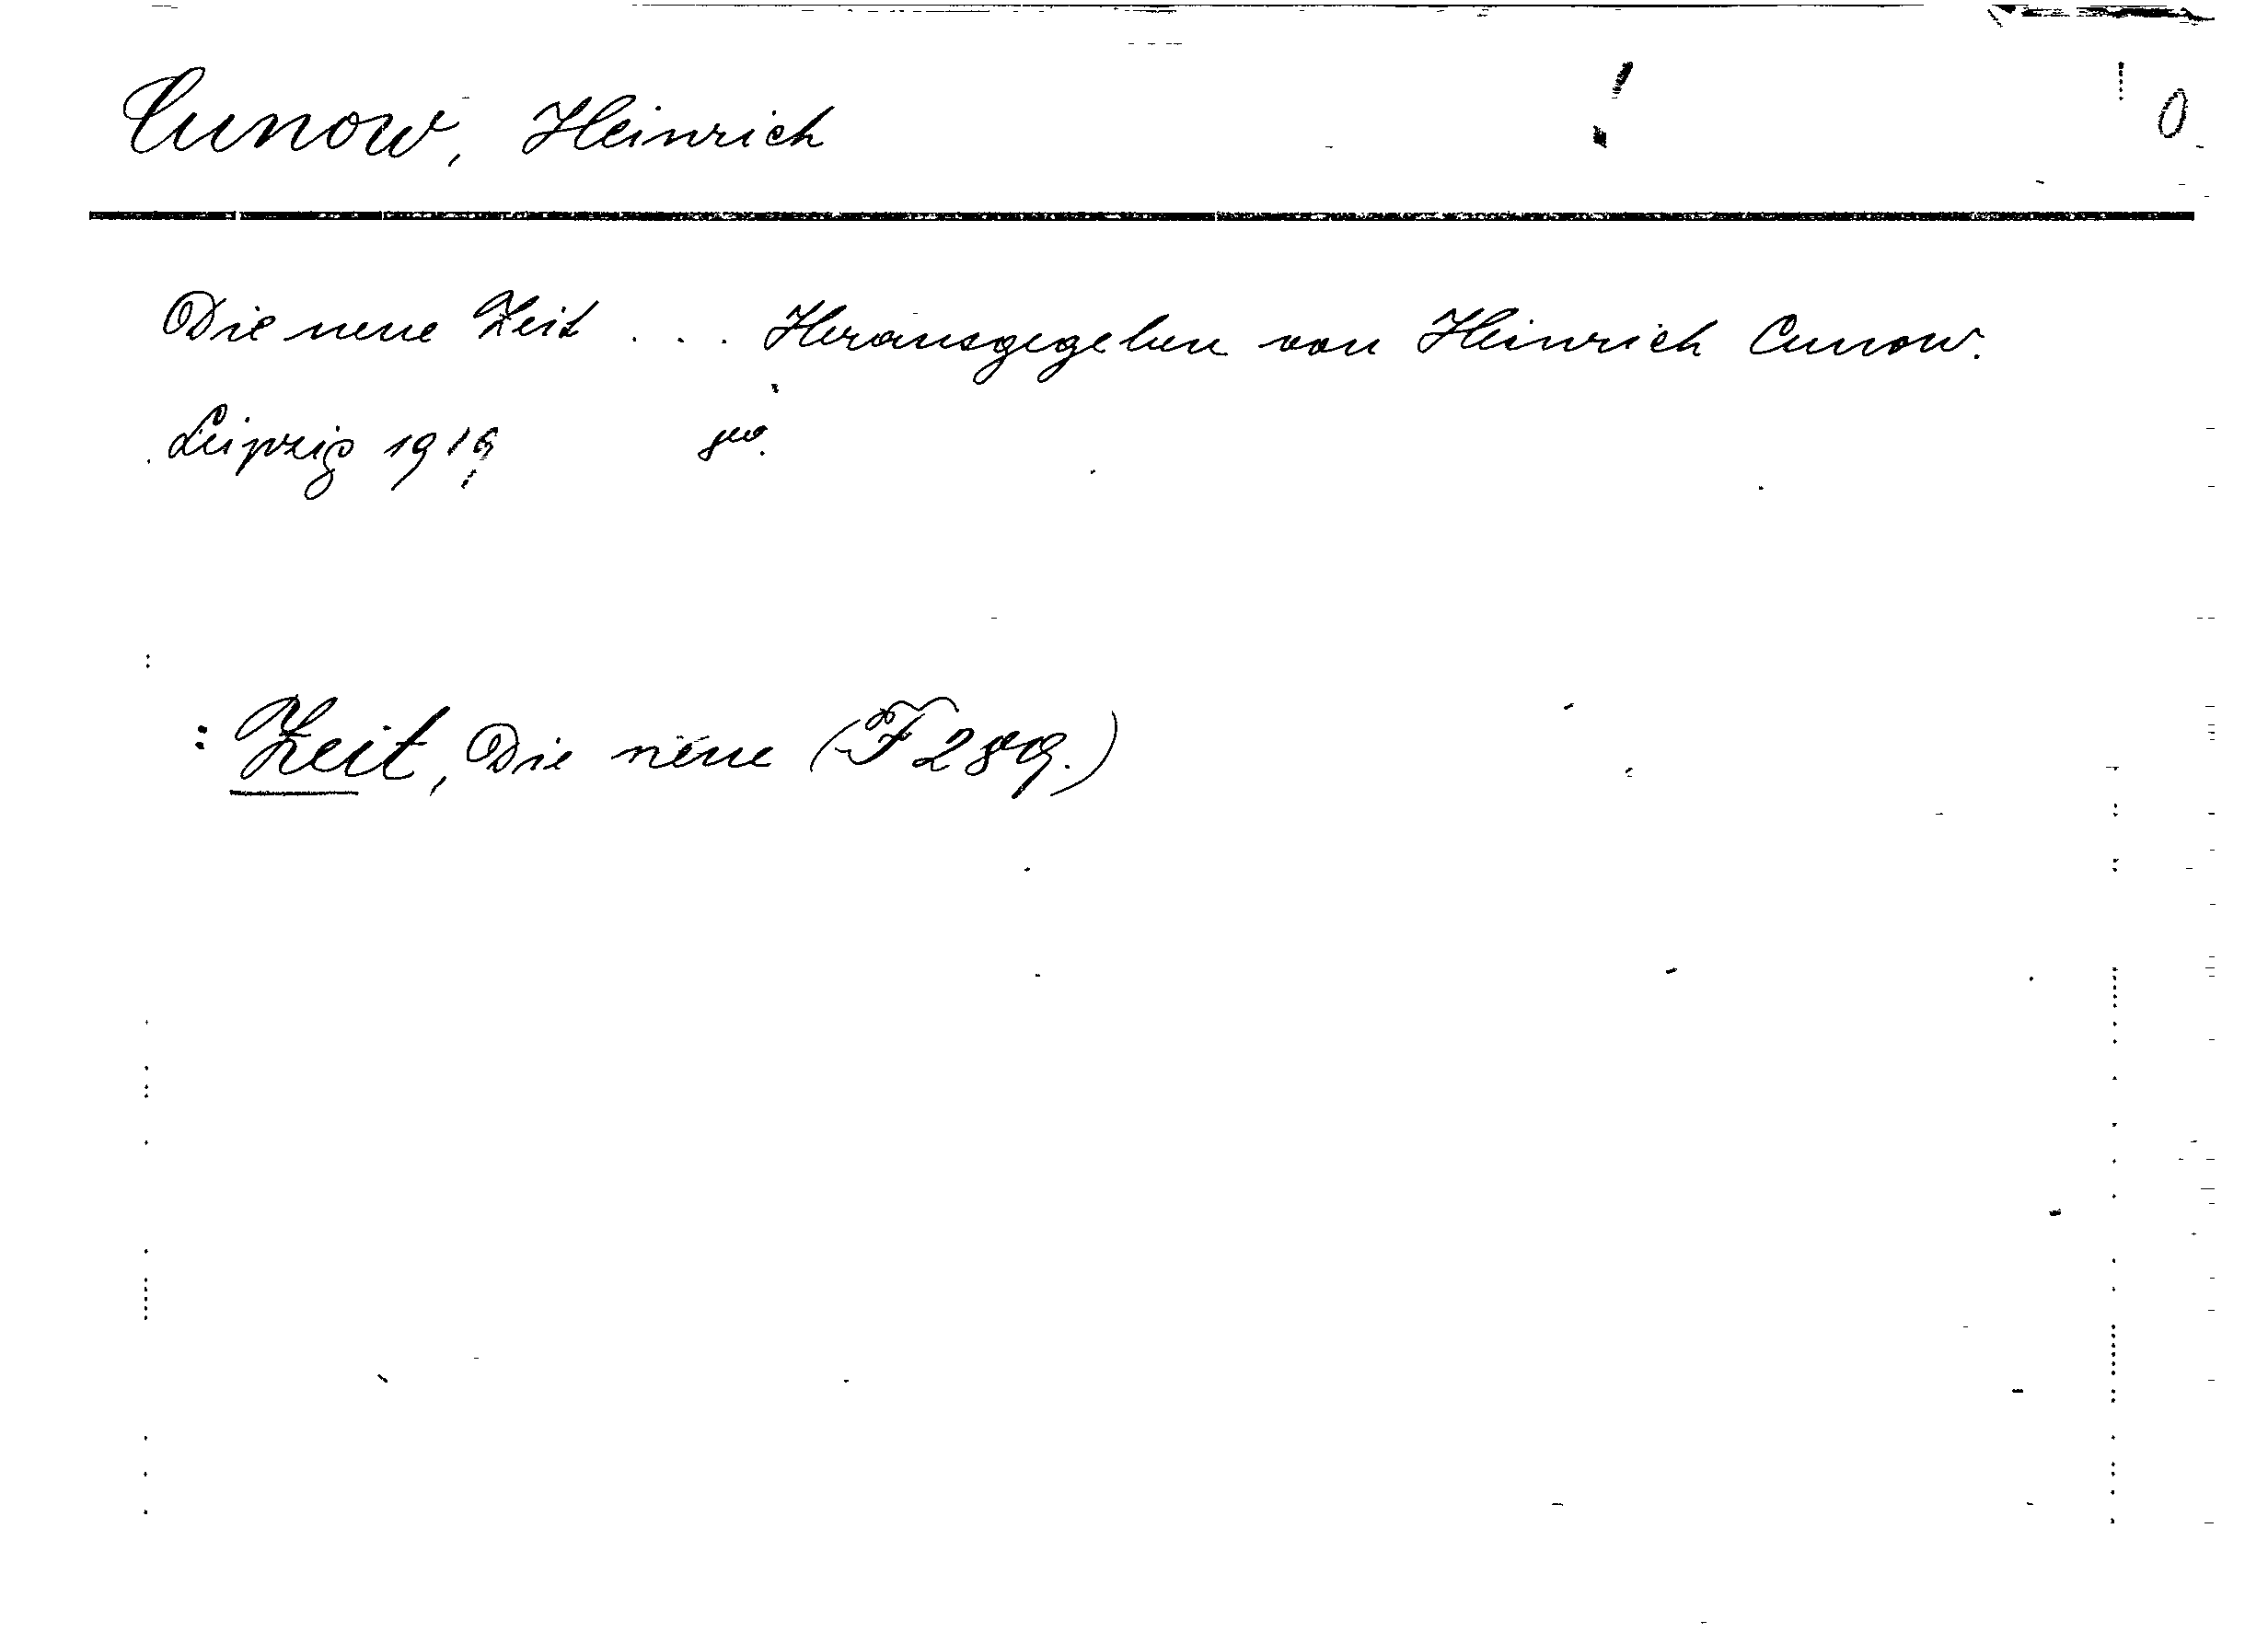 Cunow, Heinrich ! 0
Die neue Zeit ... Herausgegeben von Heinrich Cunow.
Leipzig 1919 8º.
: Zeit, Die neue (F 289.)